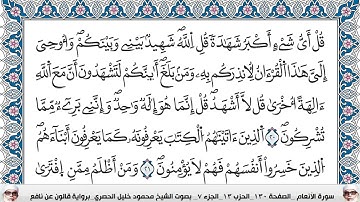 قُلْ أَىُّ شَےْءٍ أَكْبَرُ شَهَٰدَةٗ قُلِ اِ۬للَّهُ شَهِيدُۢ بَيْنِے وَبَيْنَكُمْ وَأُوحِيَ
إِلَىَّ هَٰذَا اَ۬لْقُرْءَانُ لِأُنذِرَكُم بِهِۦ وَمَنۢ بَلَغَ أَىِٕنَّكُمْ لَتَشْهَدُونَ أَنَّ مَعَ اَ۬للَّهِ
ءَالِهَةً أُخْرَىٰ قُل لَّا أَشْهَدُ قُلْ إِنَّمَا هُوَ إِلَٰهٞ وَٰحِدٞ وَإِنَّنِے بَرِےٓءٞ مِّمَّا
تُشْرِكُونَ ٢٠ اَ۬لذِينَ ءَاتَيْنَٰهُمُ اُ۬لْكِتَٰبَ يَعْرِفُونَهُۥ كَمَا يَعْرِفُونَ أَبْنَآءَهُمُ
اُ۬لذِينَ خَسِرُواْ أَنفُسَهُمْ فَهُمْ لَا يُؤْمِنُونَ ٢١ وَمَنْ أَظْلَمُ مِمَّنِ اِ۪فْتَرَىٰ
سورة الأنعام . الصفحة ١٣٠ . الحزب ١٣ . الجزء ٧ . بصوت الشيخ محمود خليل الحصري برواية قالون عن نافع